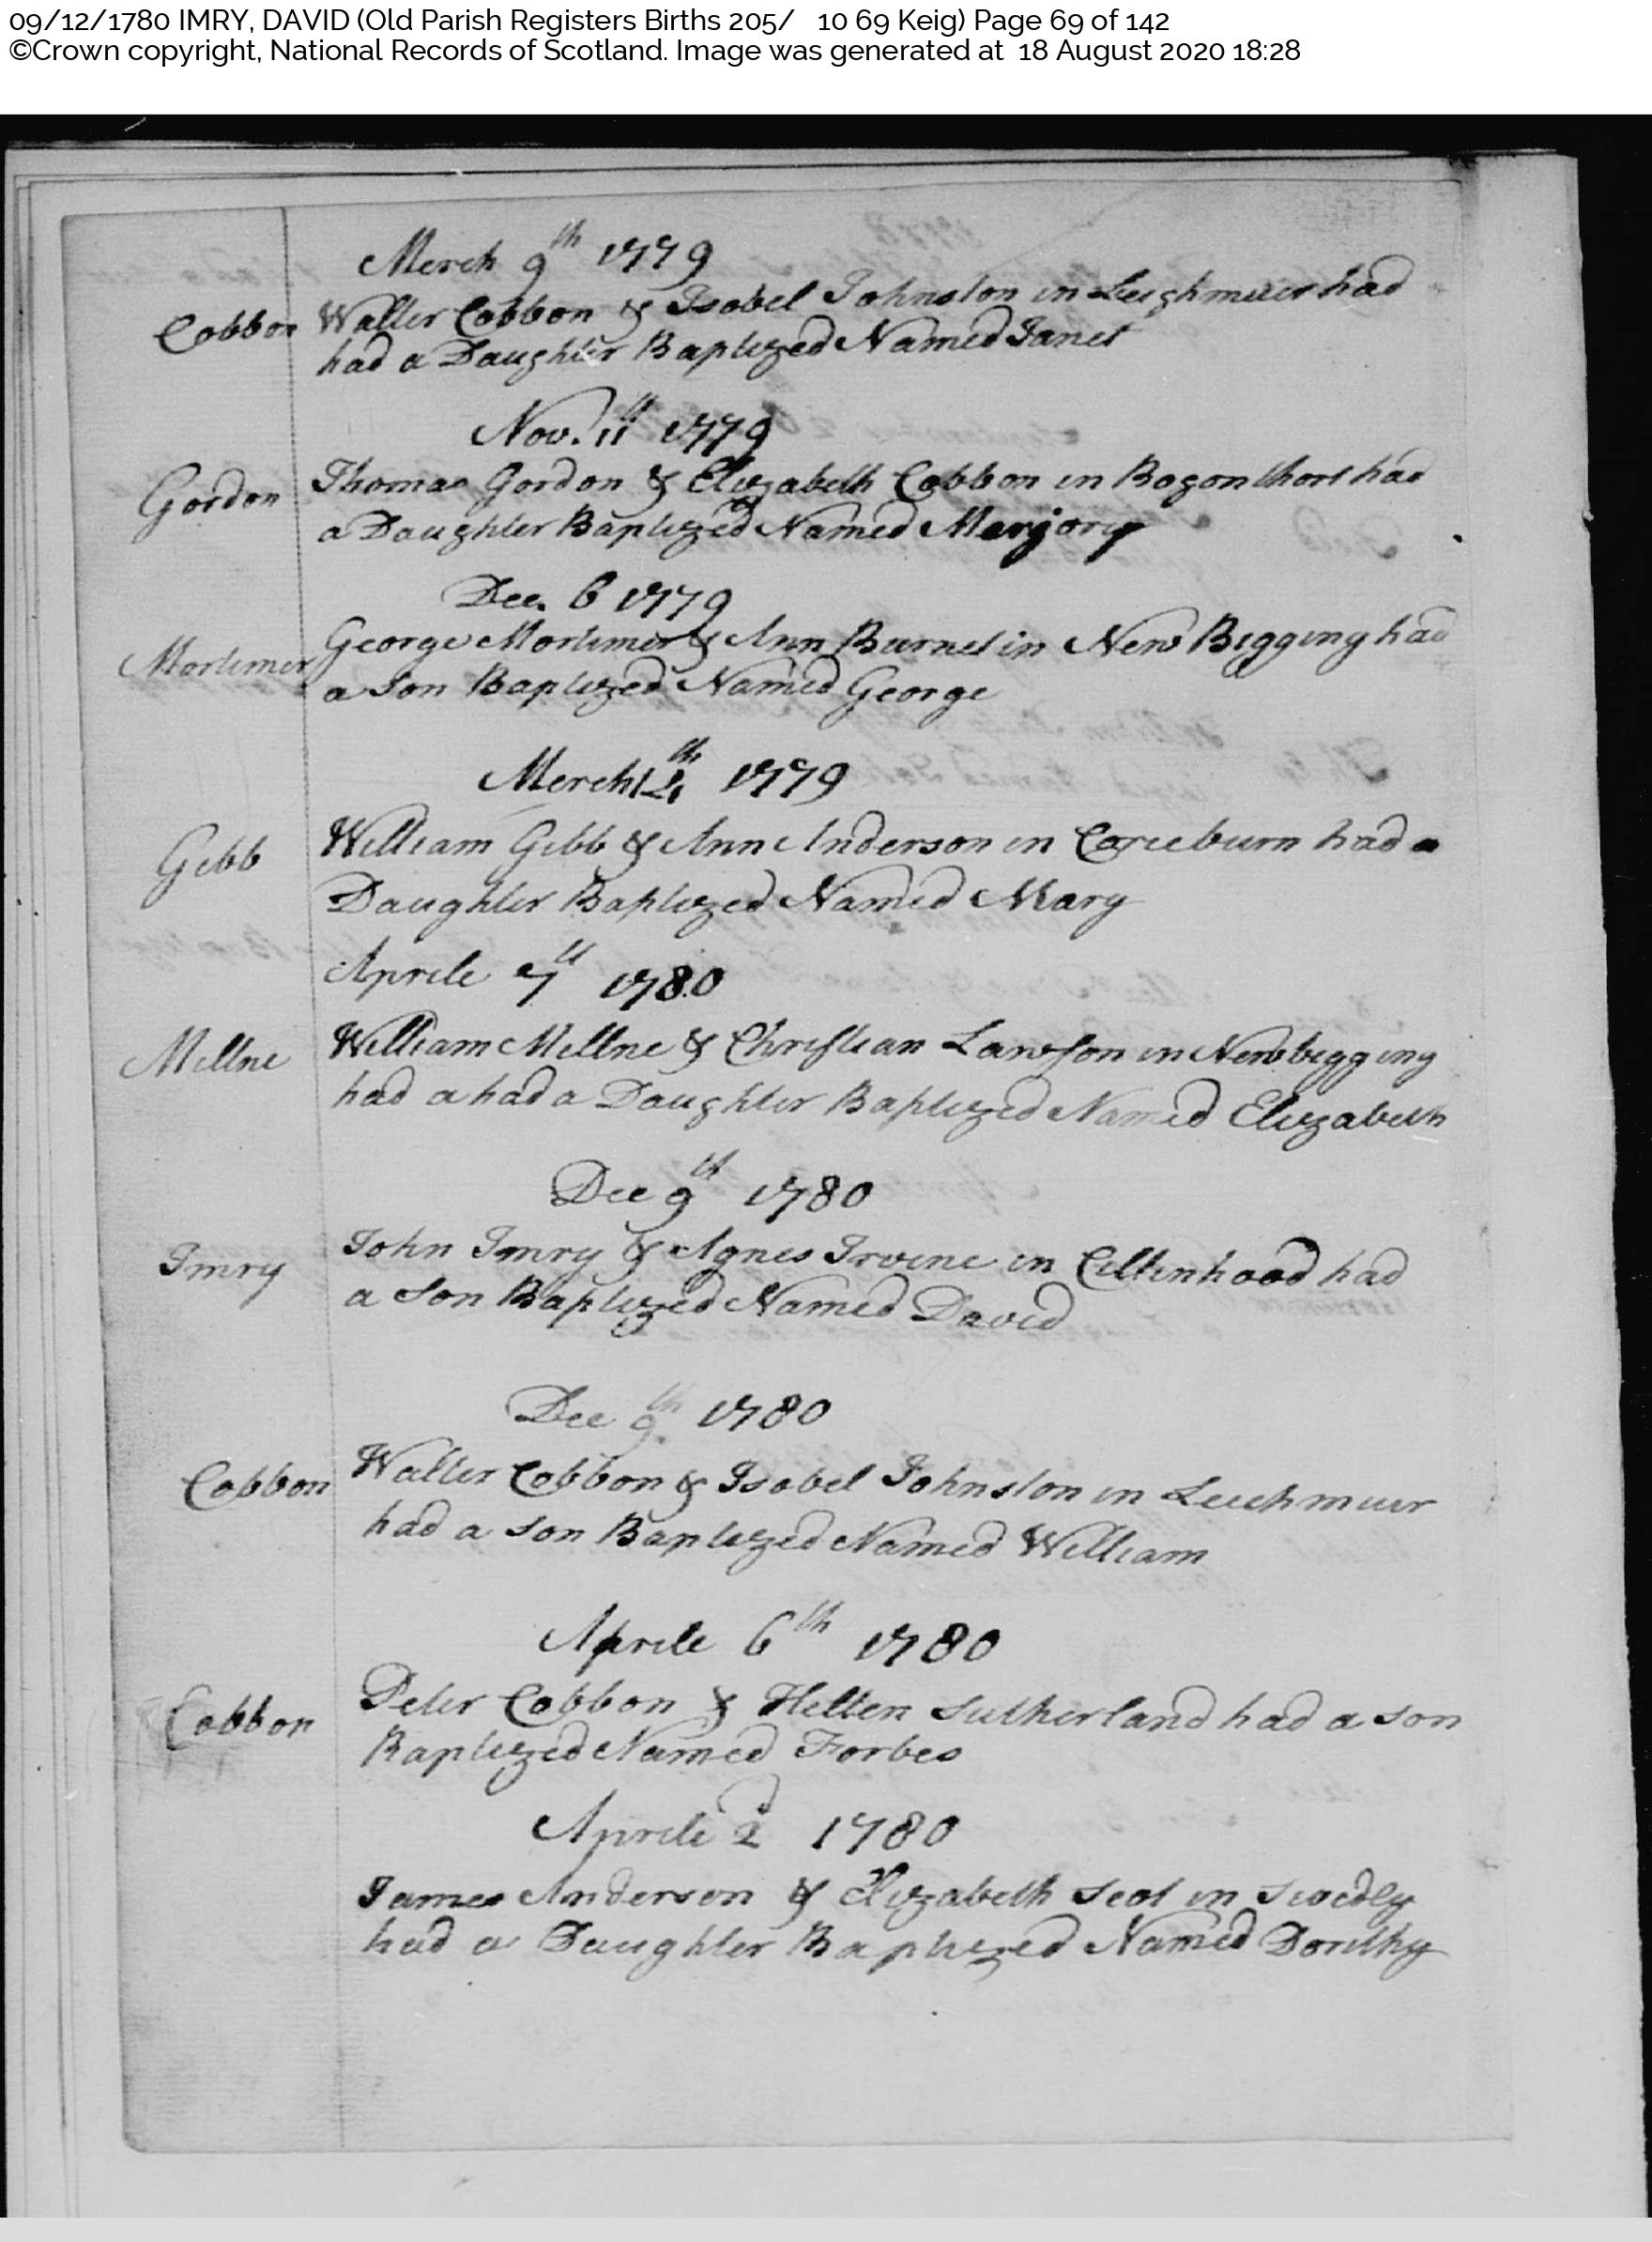 09/12/1780 IMRY, DAVID (Old Parish Registers Births 205/ 10 69 Keig) Page 69 of 142
©Crown copyright, National Records of Scotland. Image was generated at 18 August 2020 18:28
Merch 9th 1779
Cobbon Walter Cobbon & Isobel Johnston in Leighmuir had
had a Daughter Baptized Named Janet
Nov. 11th 1779
Gordon Thomas Gordon & Elizabeth Cobbon in Bogonthort had
a Daughter Baptized Named Marjory
Dec. 6 1779
Mortimer George Mortimer & Ann Burnet in New Bigging had
a Son Baptized Named George
Merch th 1779
Gibb William Gibb & Ann Anderson in had a
Daughter Baptized Named Mary
Aprile 7th 1780
Millne William Millne & Christian Lawson in Newbigging
had a had a Daughter Baptized Named Elizabeth
Dec 9th 1780
Imry John Imry & Agnes Irvine in had
a Son Baptized Named David
Dec 9th 1780
Cobbon Walter Cobbon & Isobel Johnston in Leichmuir
had a Son Baptized Named William
Aprile 6th 1780
Cobbon Peter Cobbon & Hellen Sutherland had a Son
Baptized Named Forbes
Aprile 2d 1780
James Anderson & Elizabeth Scot in
had a Daughter Baptized Named Dorithy